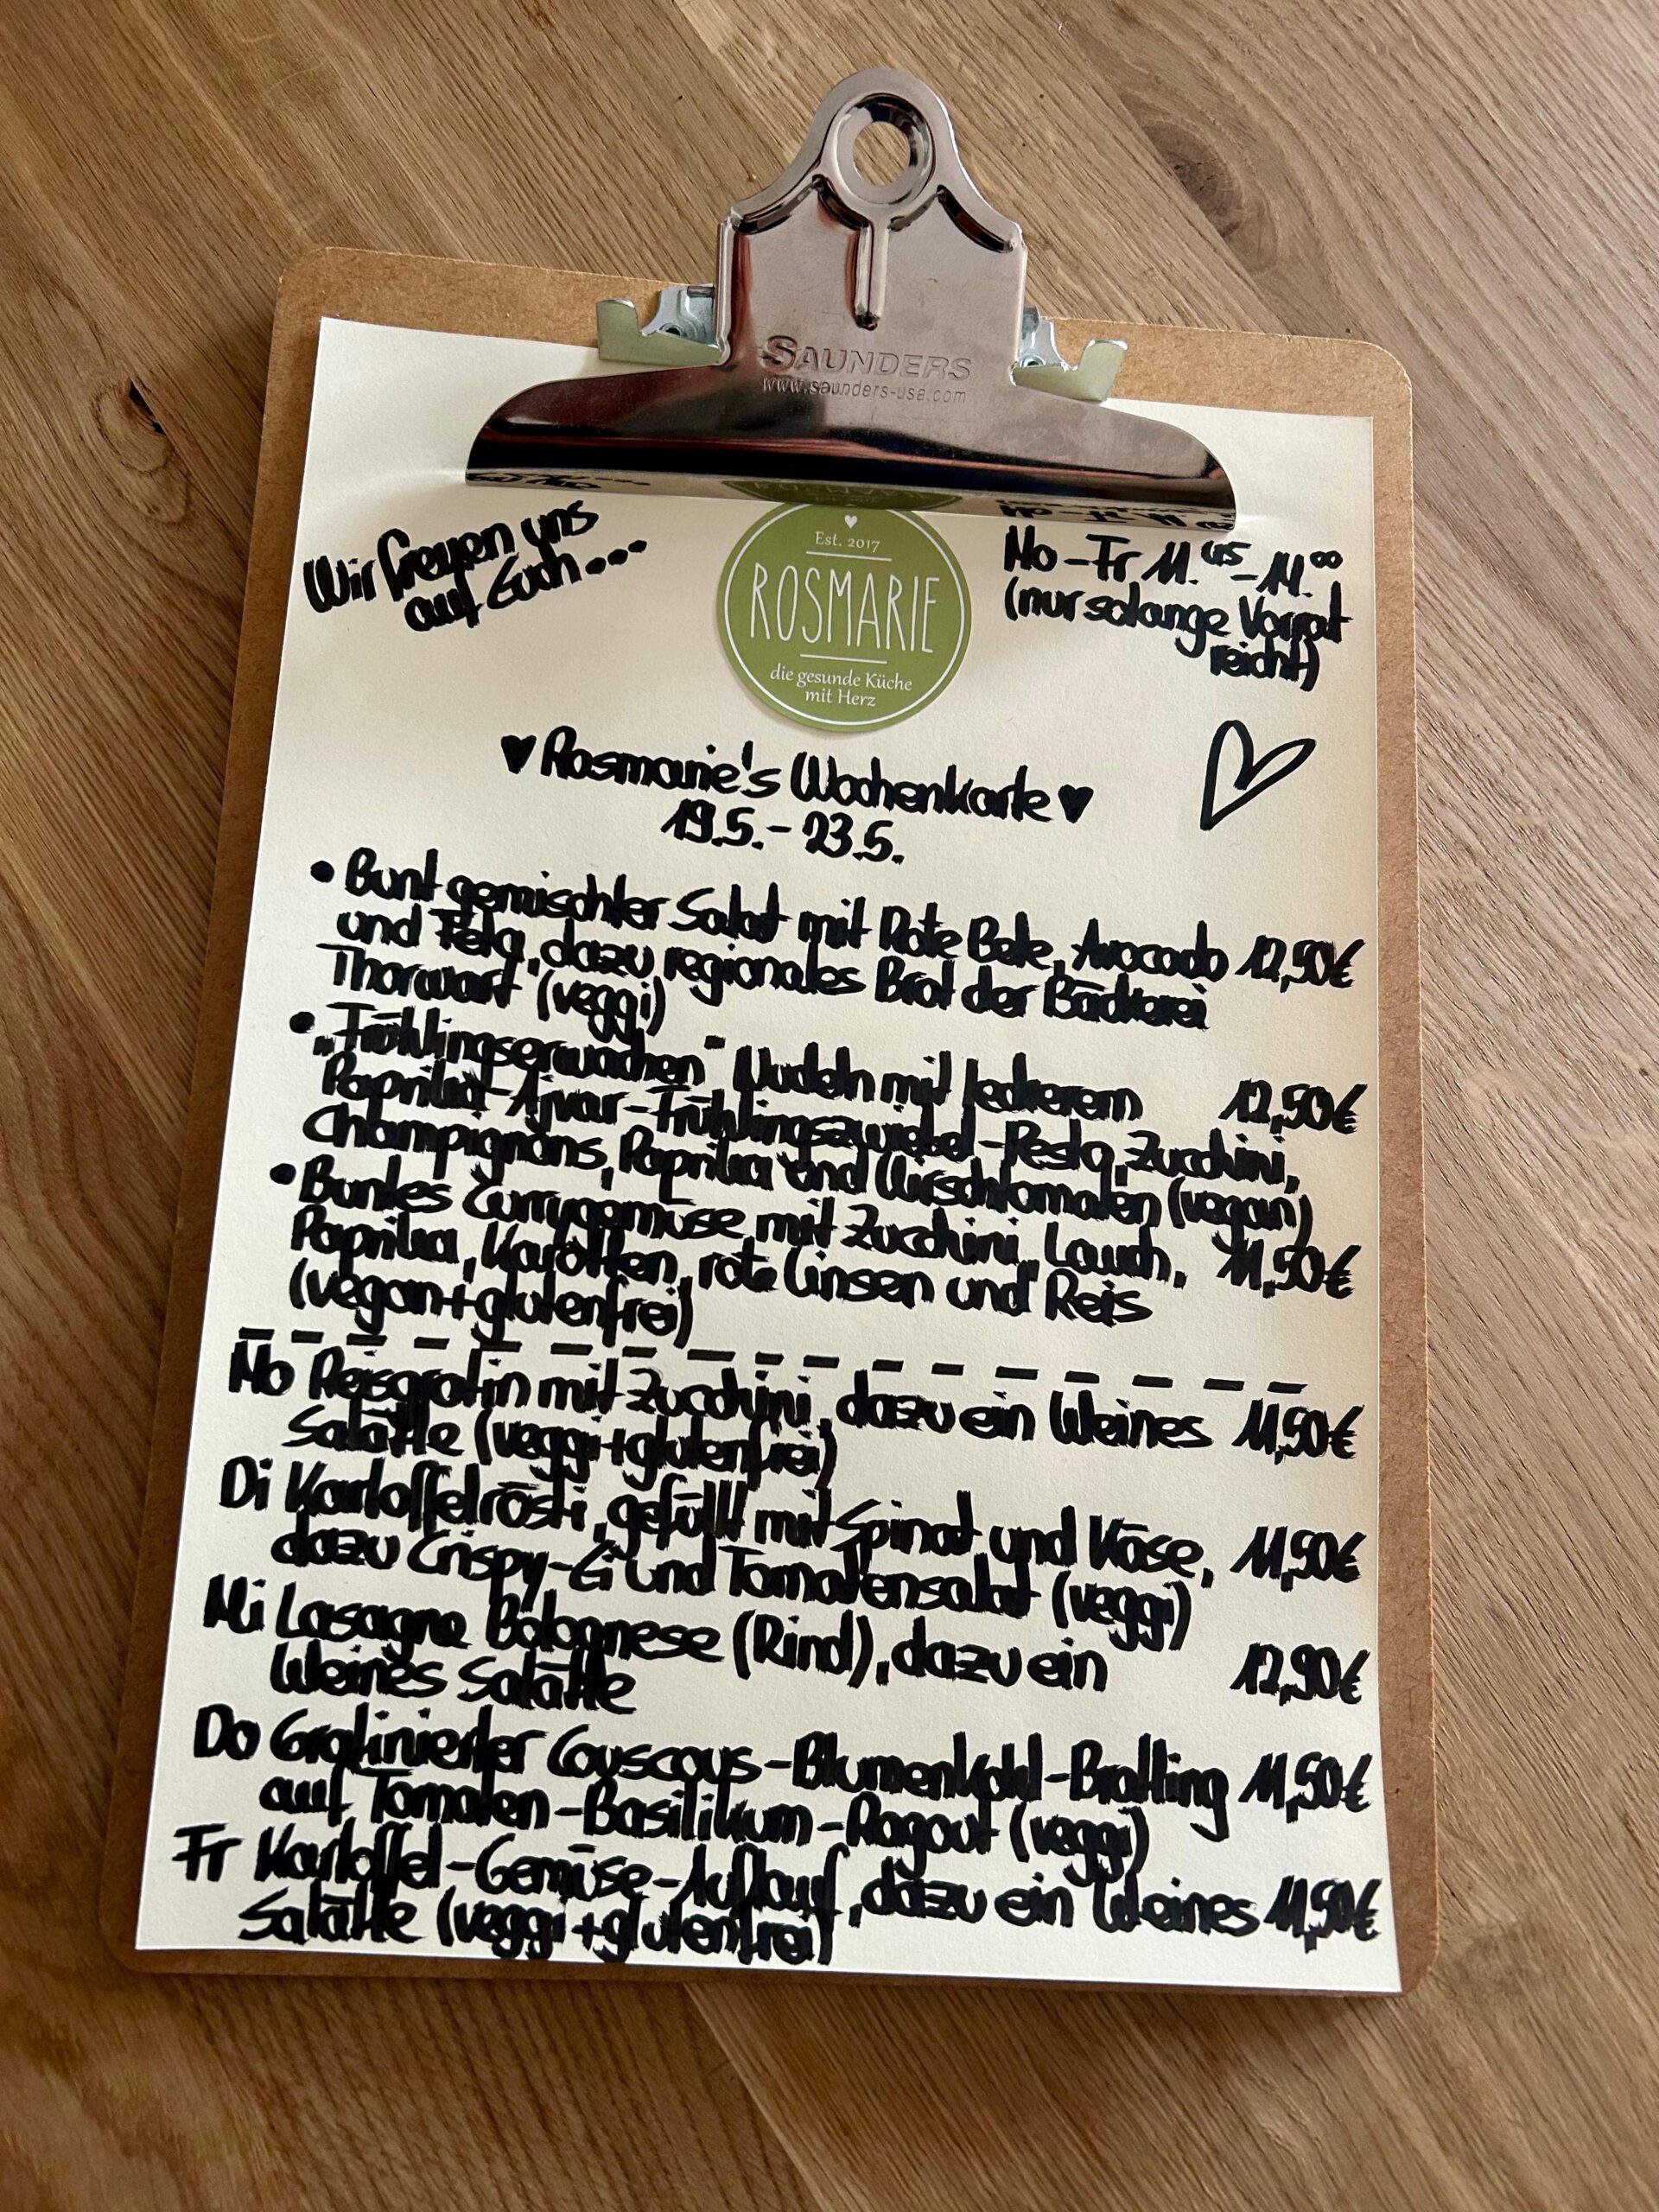 SAUNDERS
www.saunders-usa.com
Wir freuen uns
auf Euch...
Est. 2017
ROSMARIE
die gesunde Küche
mit Herz
Mo-Fr 11.45-14.00
(nur solange Vorrat
reicht)
♥ Rosmarie's Wochenkarte ♥
19.5.-23.5.
• Bunt gemischter Salat mit Rote Bete, Avocado 12,90€
und Feta, dazu regionales Brot der Bäckerei
Thorwart (veggi)
• „Frühlingserwachen" Nudeln mit leckerem 12,50€
Paprika-Ajvar-Frühlingszwiebel-Pesto, Zucchini,
Champignons, Paprika und Kirschtomaten (vegan)
• Buntes Currygemüse mit Zucchini, Lauch, 11,50€
Paprika, Karotten, rote Linsen und Reis
(vegan+glutenfrei)
Mo Reisgratin mit Zucchini, dazu ein kleines 11,50€
Salätle (veggi+glutenfrei)
Di Kartoffelrösti, gefüllt mit Spinat und Käse, 11,50€
dazu Crispy-Ei und Tomatensalat (veggi)
Mi Lasagne Bolognese (Rind), dazu ein 12,90€
kleines Salätle
Do Gratinierter Couscous-Blumenkohl-Bratling 11,50€
auf Tomaten-Basilikum-Ragout (veggi)
Fr Kartoffel-Gemüse-Auflauf, dazu ein kleines 11,50€
Salätle (veggi+glutenfrei)